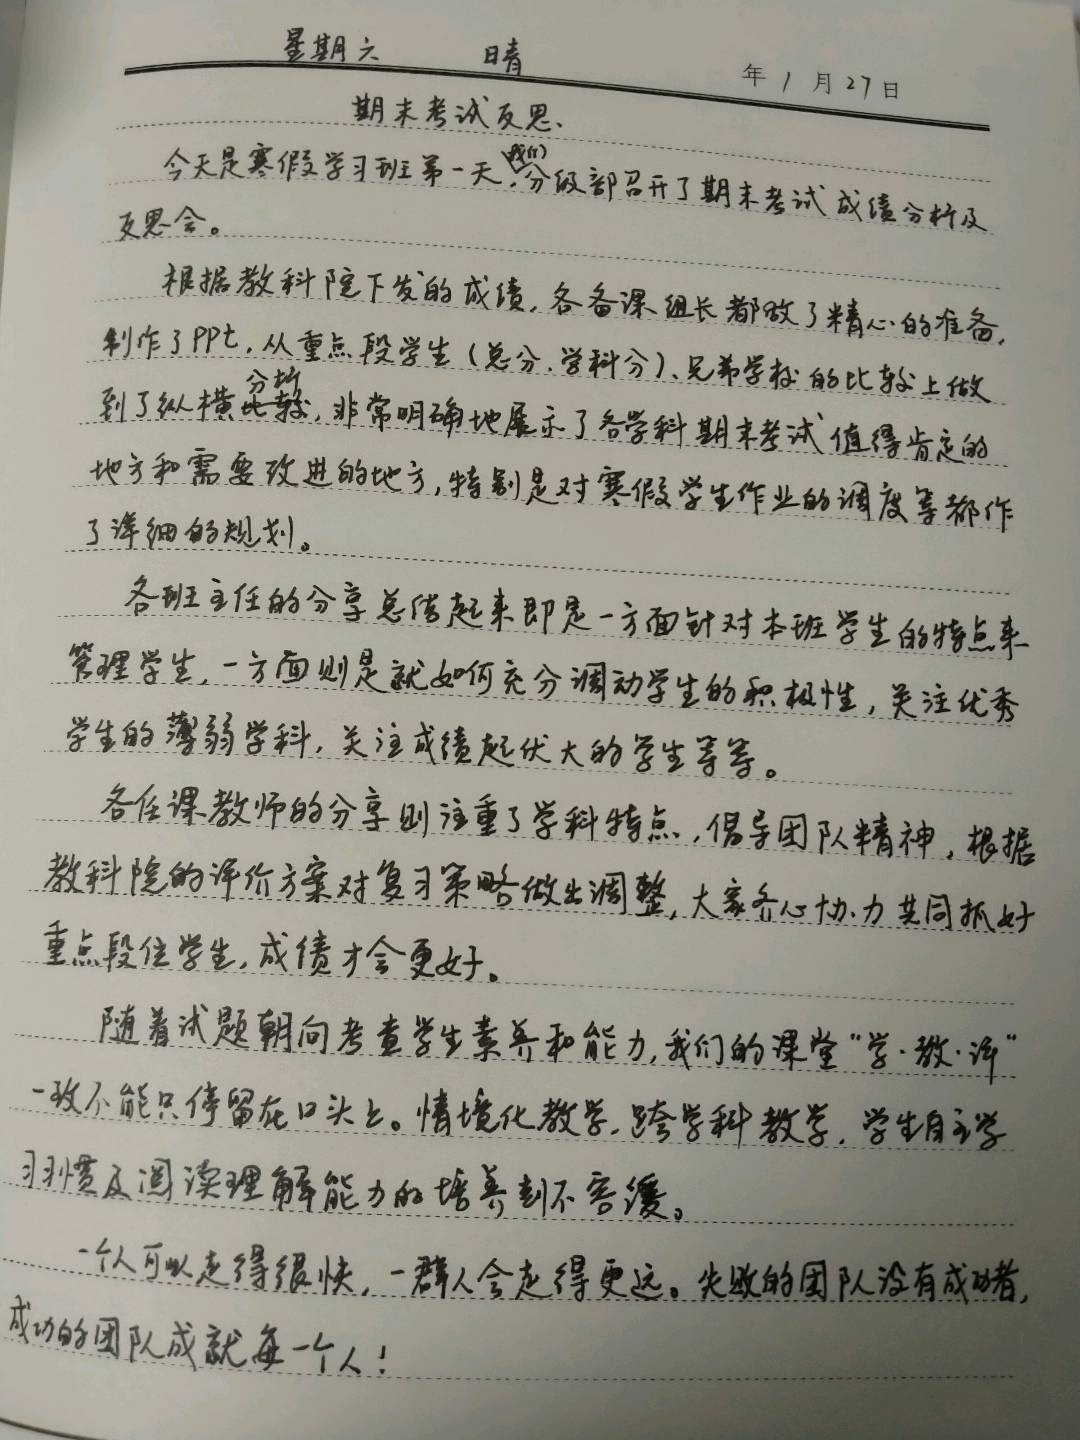 星期六 晴 年 1 月 27 日
期末考试反思、
今天是寒假学习班第一天，我们分级部召开了期末考试成绩分析及
反思会。
根据教科院下发的成绩，各备课组长都做了精心的准备，
制作了PPt，从重点段学生（总分、学科分）、兄弟学校的比较上做
到了纵横分析，非常明确地展示了各学科期末考试值得肯定的
地方和需要改进的地方，特别是对寒假学生作业的调度等都作
了详细的规划。
各班主任的分享总结起来即是一方面针对本班学生的特点来
管理学生，一方面则是就如何充分调动学生的积极性，关注优秀
学生的薄弱学科，关注成绩起伏大的学生等等。
各任课教师的分享则注重了学科特点，倡导团队精神，根据
教科院的评价方案对复习策略做出调整，大家齐心协力共同抓好
重点段位学生，成绩才会更好。
随着试题朝向考查学生素养和能力，我们的课堂“学·教·评”
一致不能只停留在口头上。情境化教学，跨学科教学，学生自主学
习习惯及阅读理解能力的培养刻不容缓。
一个人可以走得很快，一群人会走得更远。失败的团队没有成功者，
成功的团队成就每一个人！